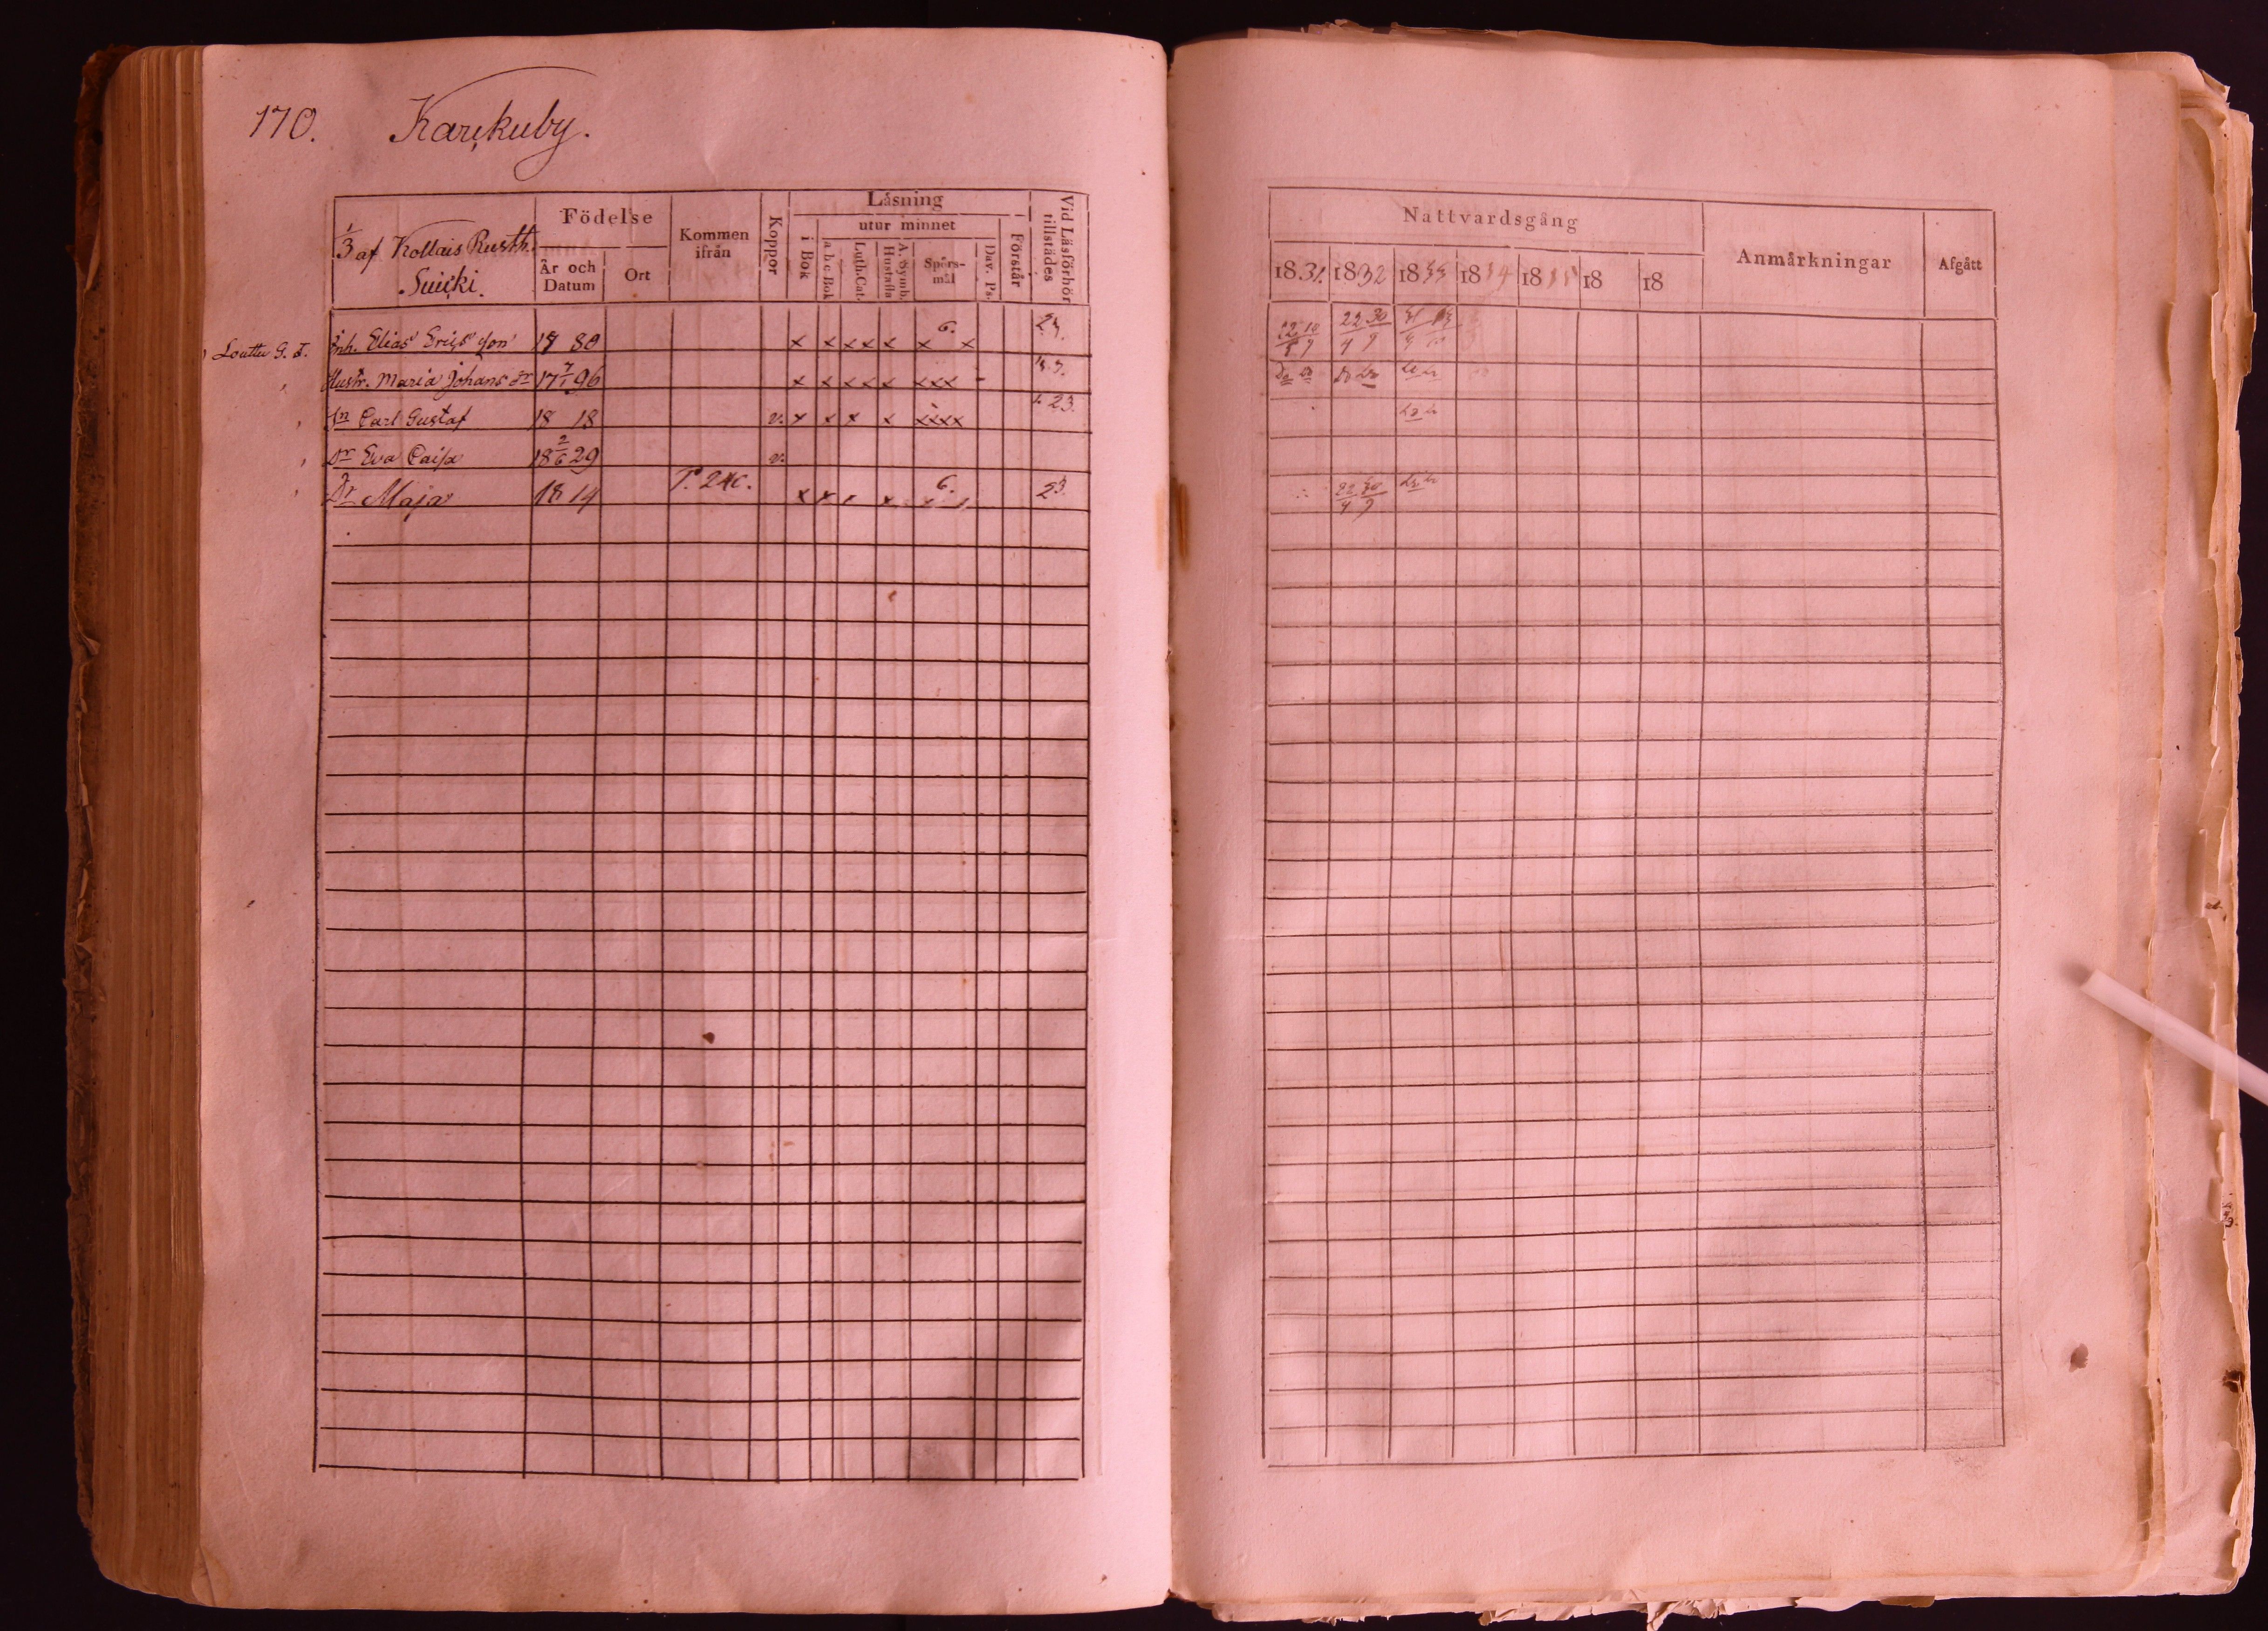 170. Karkuby.
1/3 af Kollais Rusth.
Suicki.
Födelse
År och Datum
Ort
Kommen ifrån
Koppor
Låsning
utur minnet
i Bok
a b c Bok
Luth. Cat.
A. Symb. Hustafla
Spörs-mål
Dav. Ps.
Förstår
Vid Läsförhör tillstädes
Inh. Elias Ericsson 80 x x x x x x 6. x
Hustr. Maria Johans dr 17 7/1 96 x x x x x x x x
Sn Carl Gustaf 18 18 v. x x x x x x x x 23.
Dr Eva Caisa 18 2/6 29 v.
Dr Maja 18 14 6. 23.
Nattvardsgång
1831. 1832 1833 1834 1835 18 18
Anmärkningar
Afgått
22/4 30/9
22/4 30/9